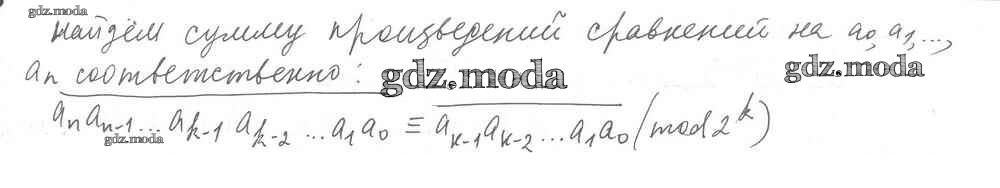 gdz.moda
Найдём сумму произведений сравнений на a₀, a₁, ...,
aₙ соответственно: gdz.moda gdz.moda
aₙaₙ₋₁...aₖ₋₁aₖ₋₂...a₁a₀ ≡ aₖ₋₁aₖ₋₂...a₁a₀ (mod 2ᵏ)
gdz.moda